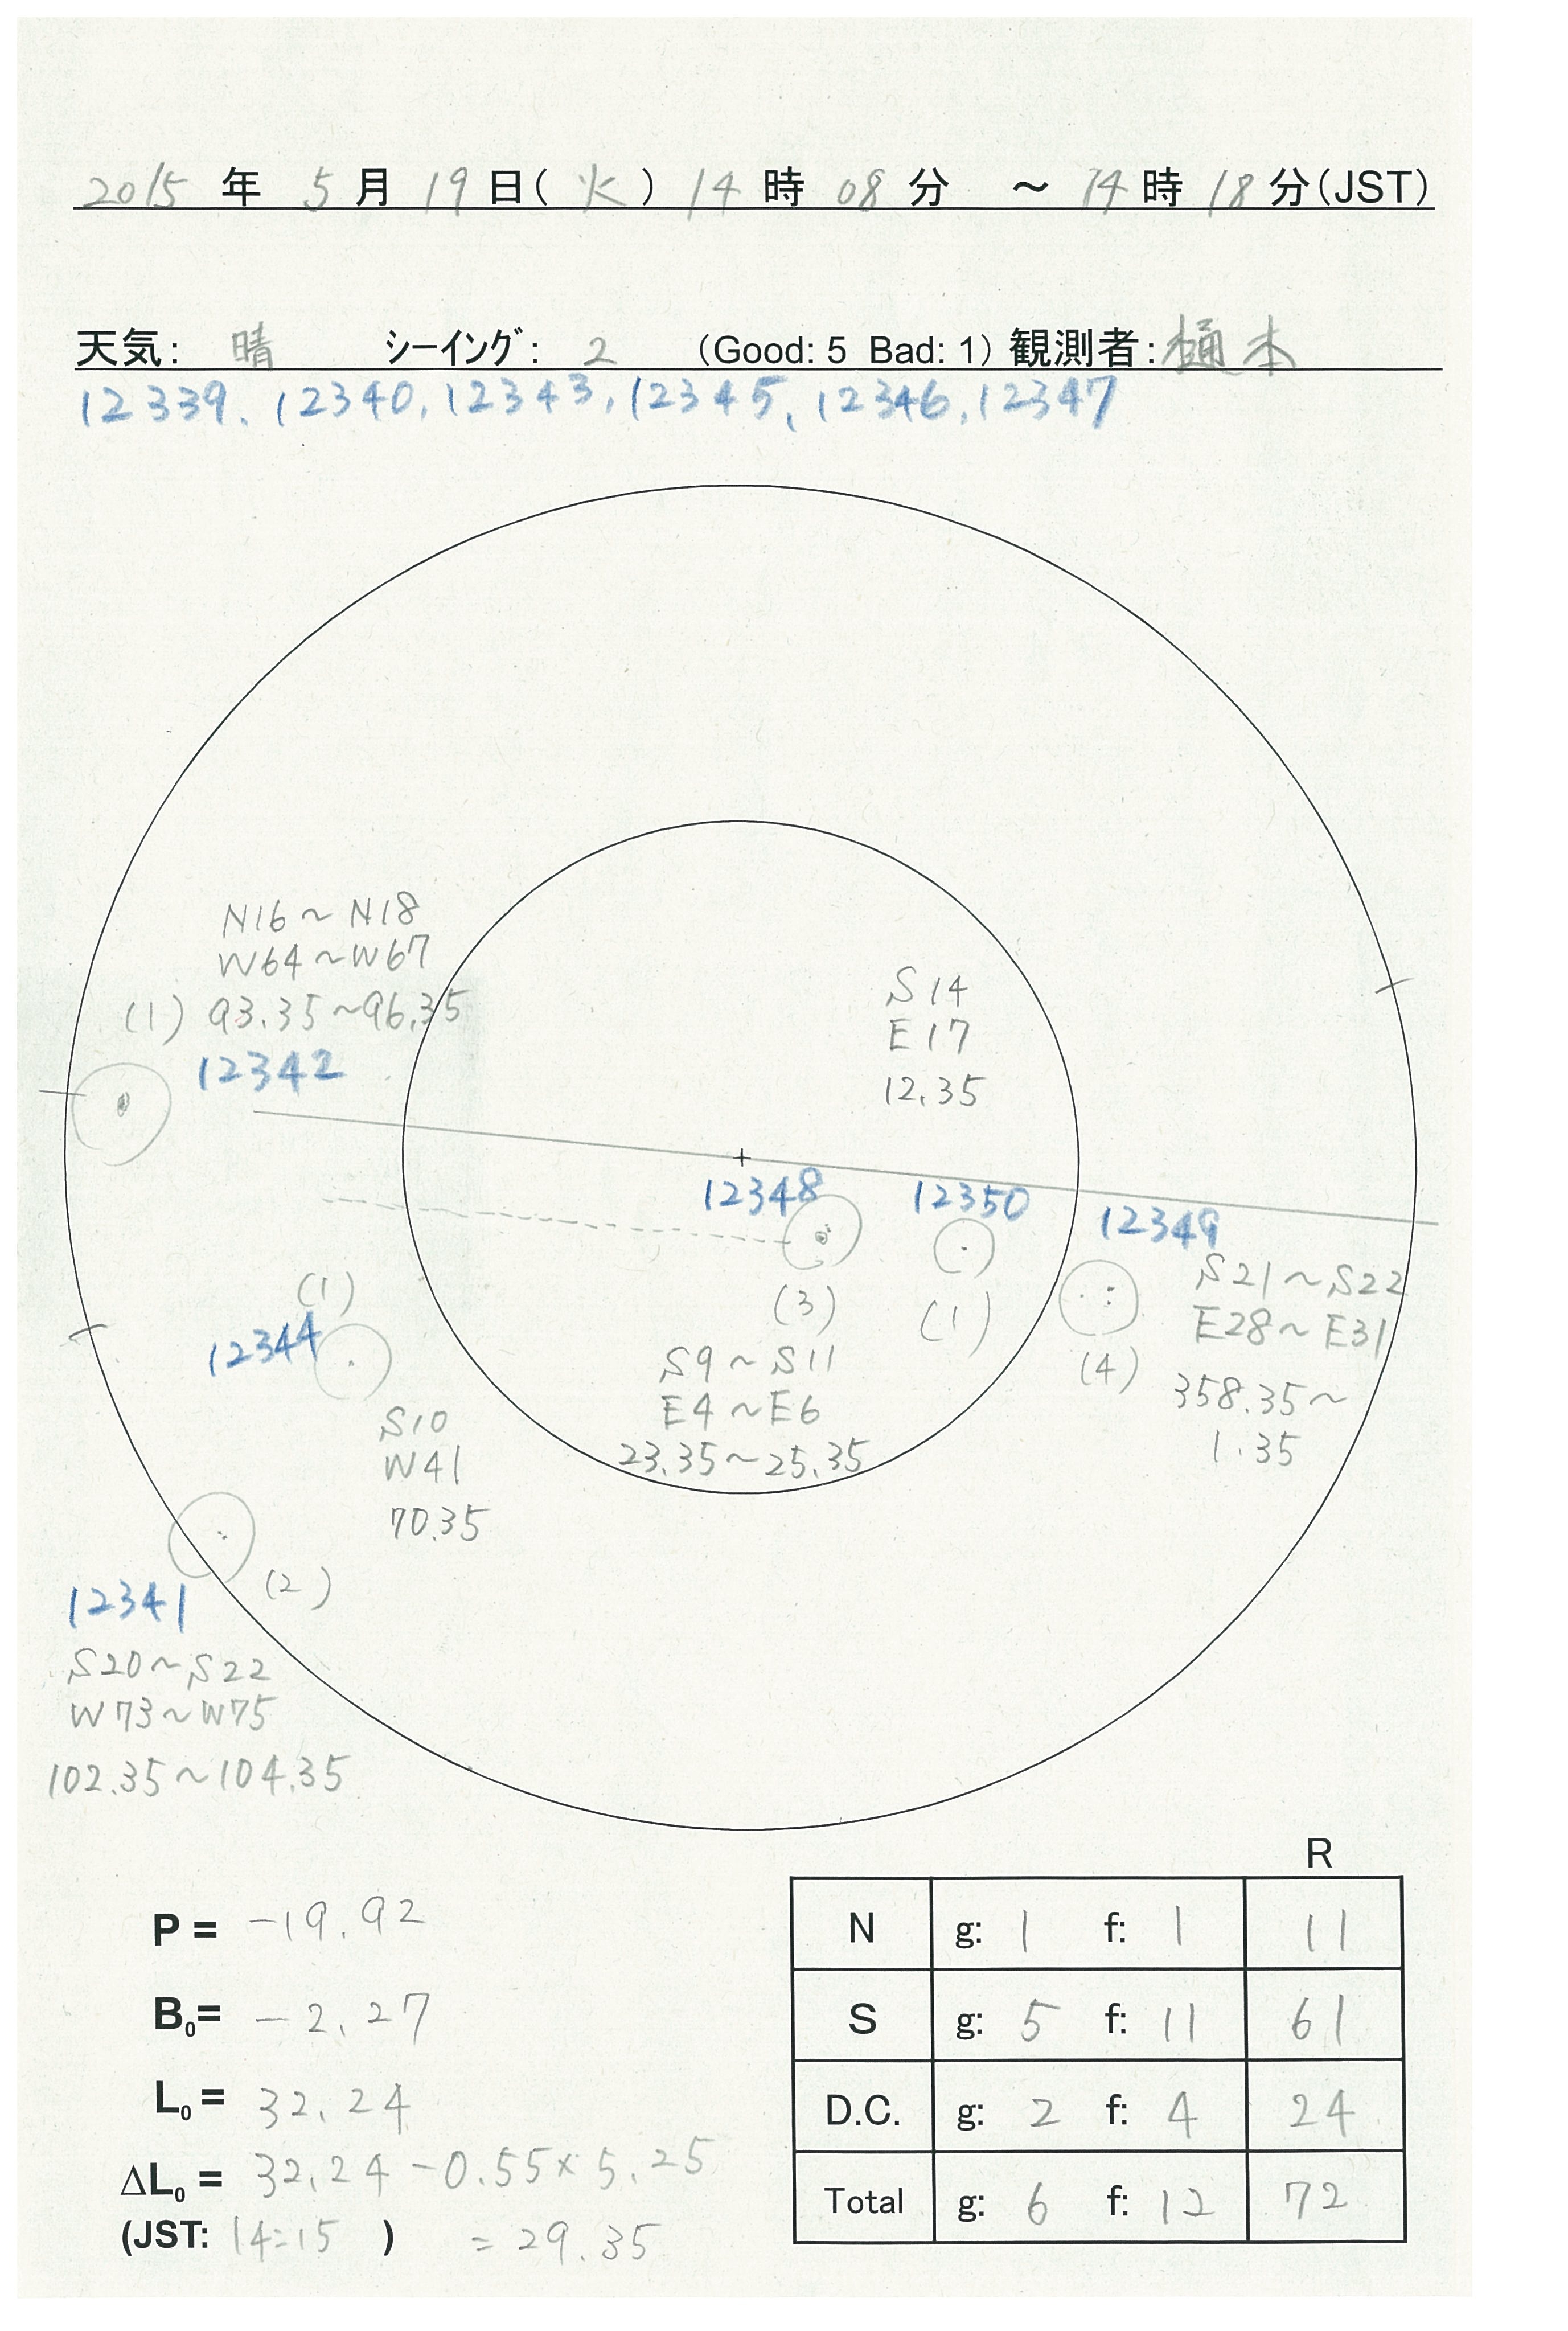 2015 年 5 月 19 日( 火 ) 14 時 08 分 ～ 14 時 18 分(JST)
天気: 晴 シーイング: 2 (Good: 5 Bad: 1) 観測者: 樋本
12339. 12340, 12343, 12345, 12346, 12347
N16～N18
W64～W67
(1) 93.35～96.35
12342
S14
E17
12.35
12348
12350
12349
S21～S22
E28～E31
(4) 358.35～
1.35
(3)
(1)
S9～S11
E4～E6
23.35～25.35
(1)
12344
S10
W41
70.35
(2)
12341
S20～S22
W73～W75
102.35～104.35
P = -19.92
B0= -2.27
L0 = 32.24
ΔL0 = 32.24 -0.55×5.25
(JST: 14:15 ) = 29.35
R
N g: 1 f: 1 11
S g: 5 f: 11 61
D.C. g: 2 f: 4 24
Total g: 6 f: 12 72